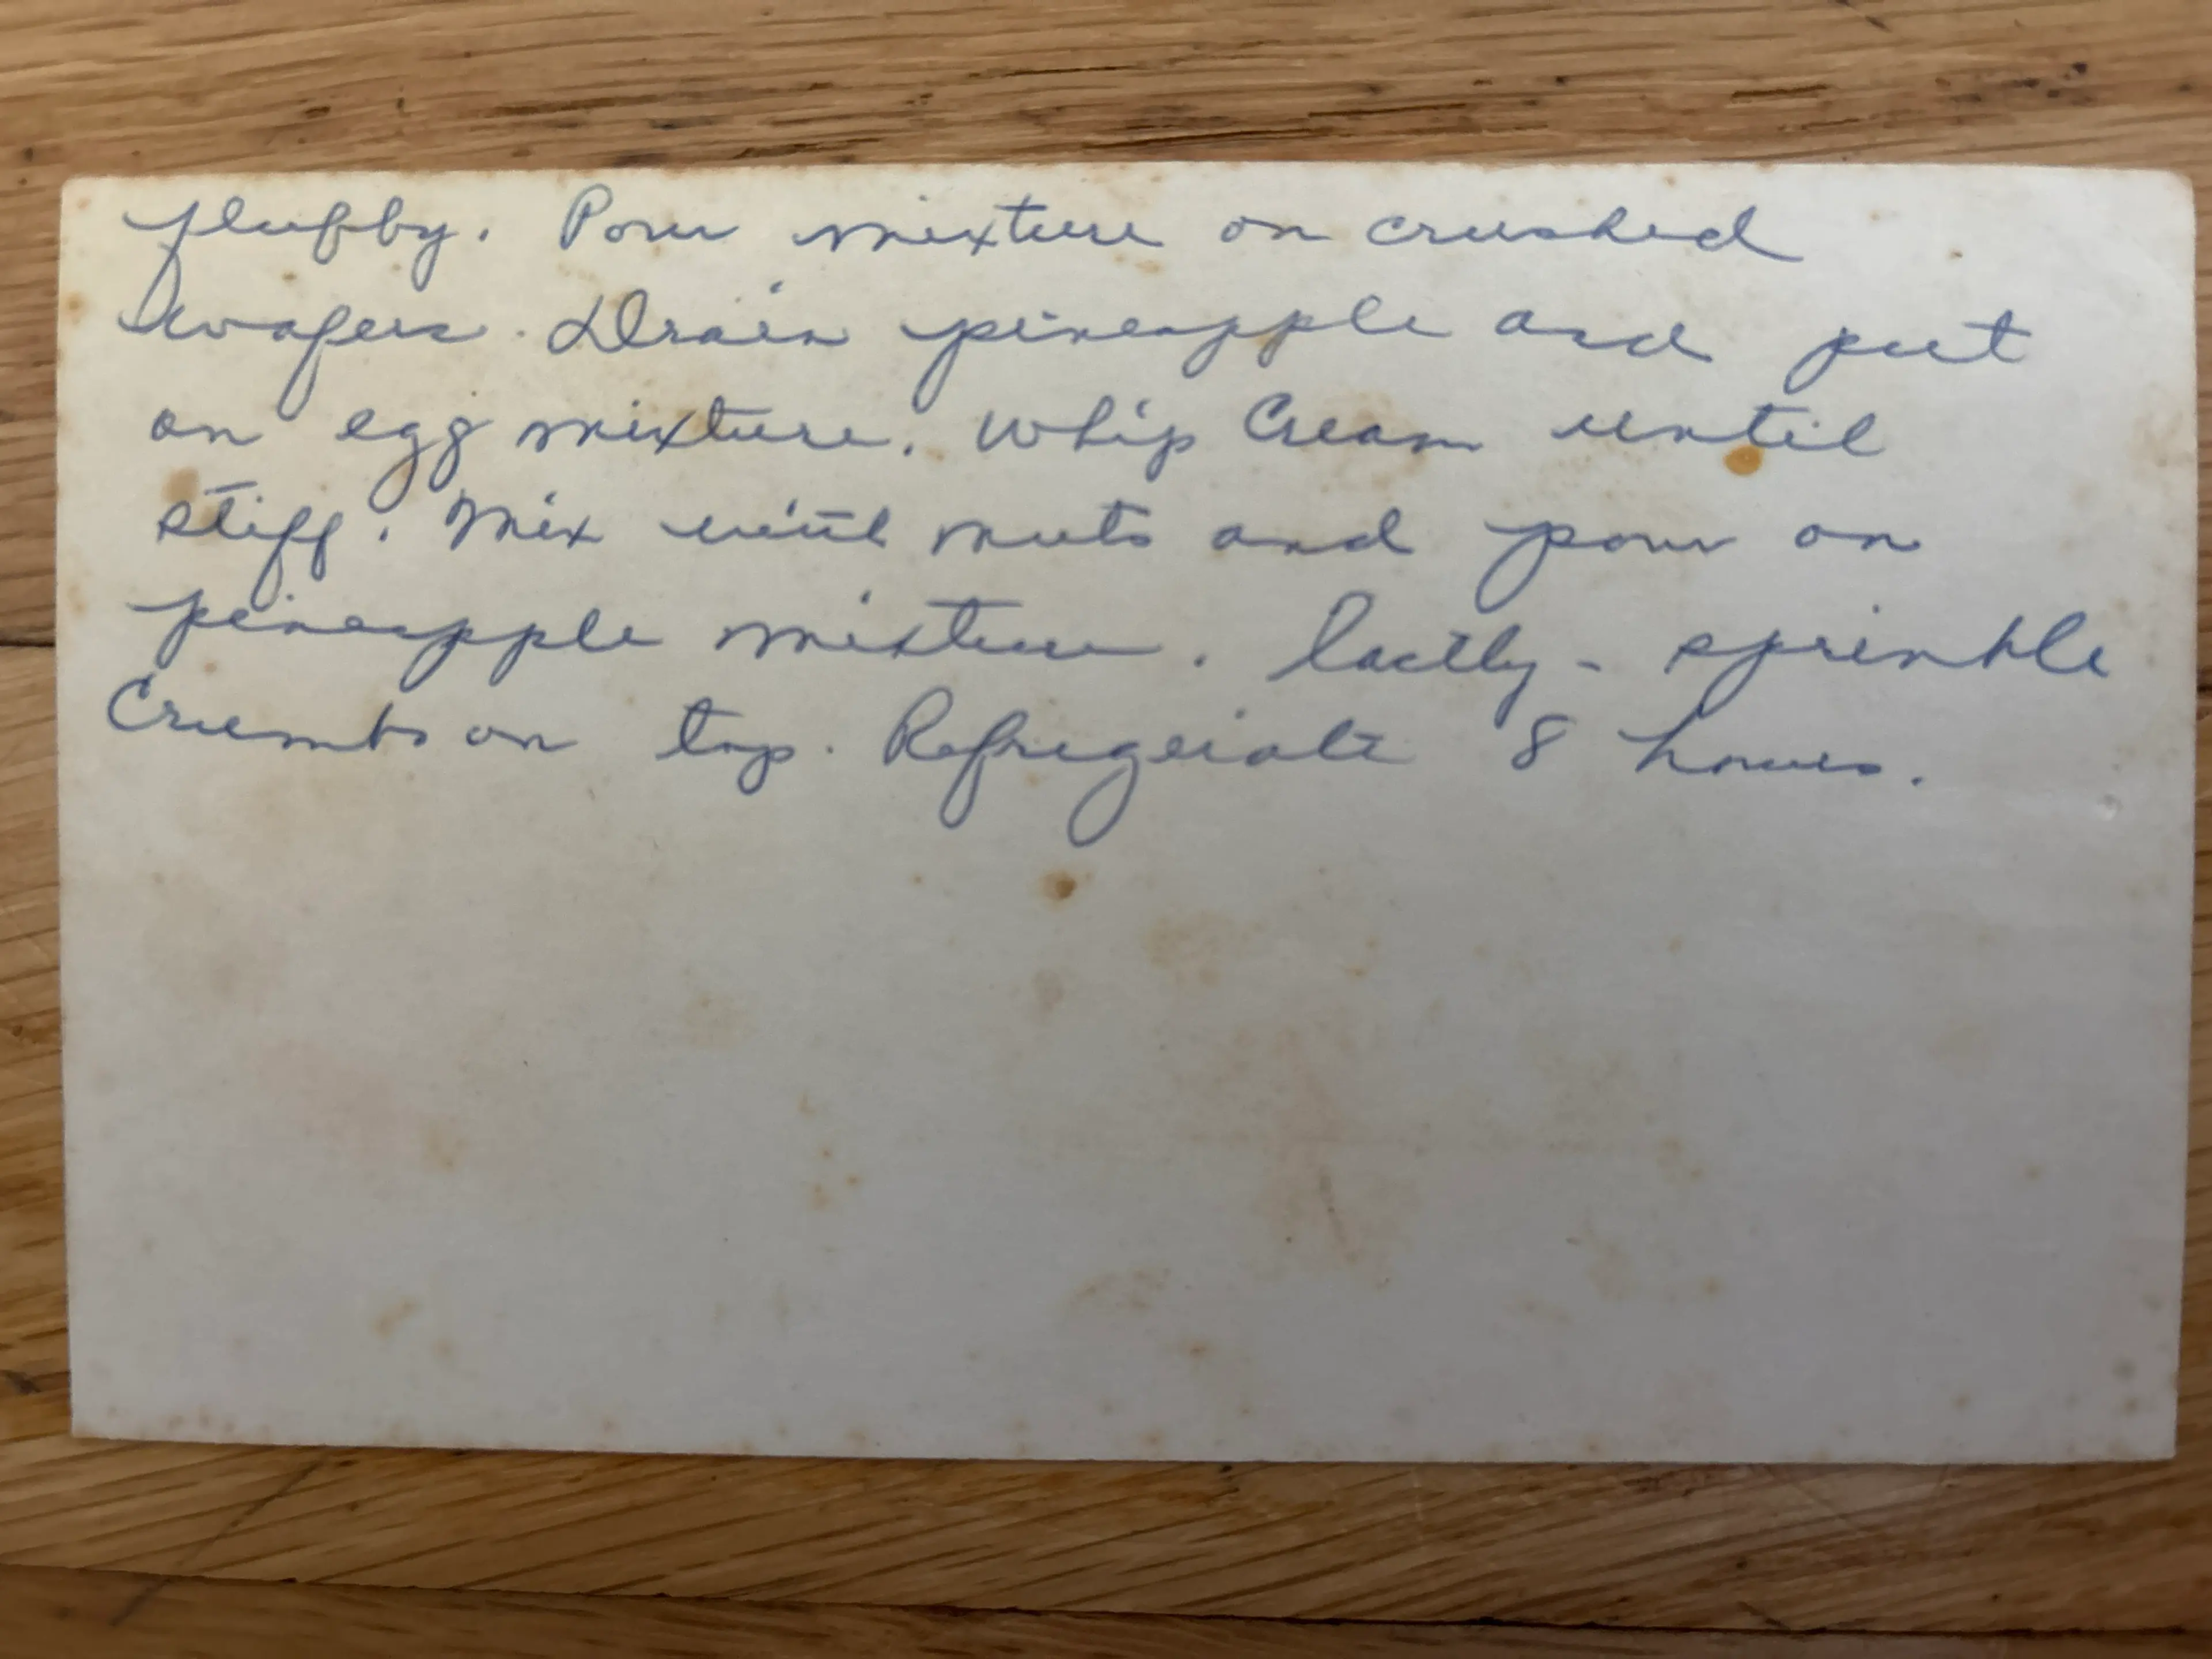 fluffy. Pour mixture on crushed
wafers. Drain pineapple and put
on egg mixture. Whip Cream until
stiff. Mix with nuts and pour on
pineapple mixture. lastly - sprinkle
Crumbs on top. Refrigerate 8 hours.